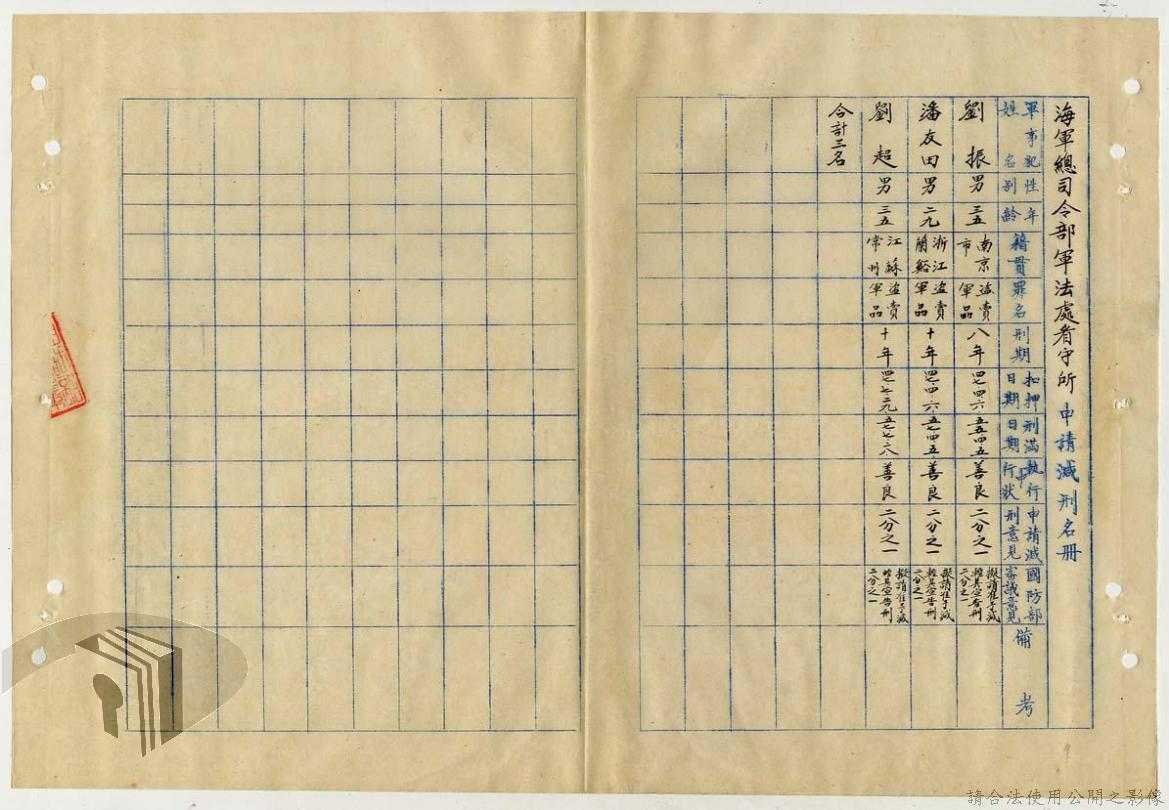 海軍總司令部軍法處看守所申請減刑名冊
軍事犯姓名 性別 年齡 籍貫 罪名 刑期 扣押日期 刑滿日期 執行中行狀 申請減刑意見 國防部審議意見 備考
劉振 男 三五 南京市 盜賣軍品 八年 四七、四、六 五五、四、五 善良 二分之一 擬請准予減輕其宣告刑二分之一
潘友田 男 二九 浙江蘭谿 盜賣軍品 十年 四七、四、六 五七、四、五 善良 二分之一 擬請准予減輕其宣告刑二分之一
劉超 男 三五 江蘇常州 盜賣軍品 十年 四七、七、二九 五七、七、二八 善良 二分之一 擬請准予減輕其宣告刑二分之一
合計三名
請合法使用公開之影像